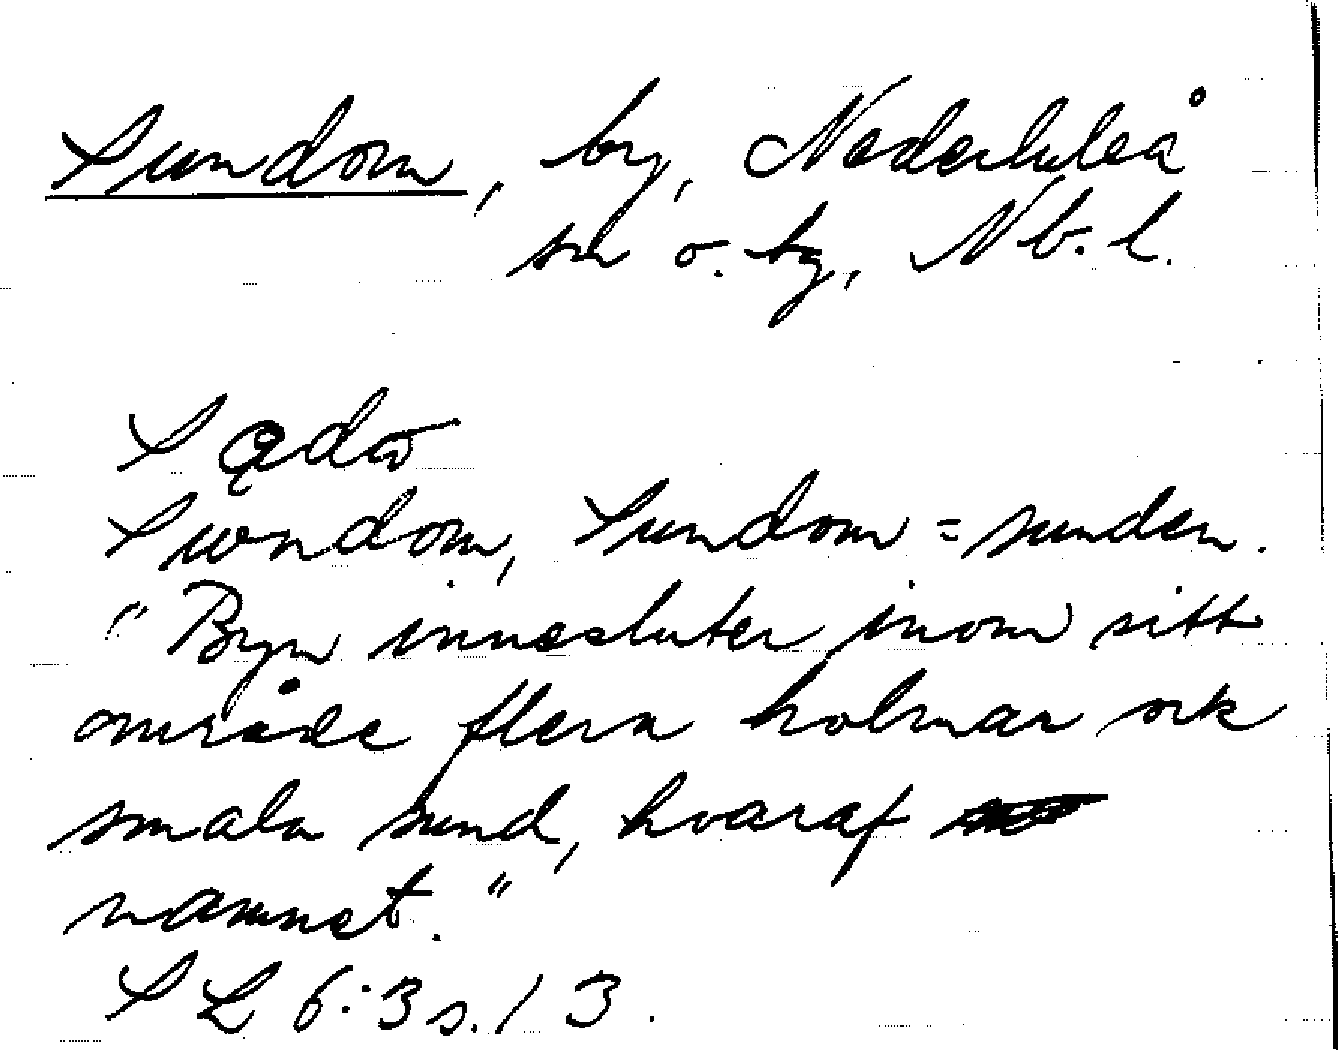 Sundom, by, Nederluleå
sn o. tg, Nb.l.
Sundom, Sundom = sunden.
"Byn innesluter inom sitt
område flera holmar ock
smala sund, hvaraf
namnet."
SL 6:3 s. 13.